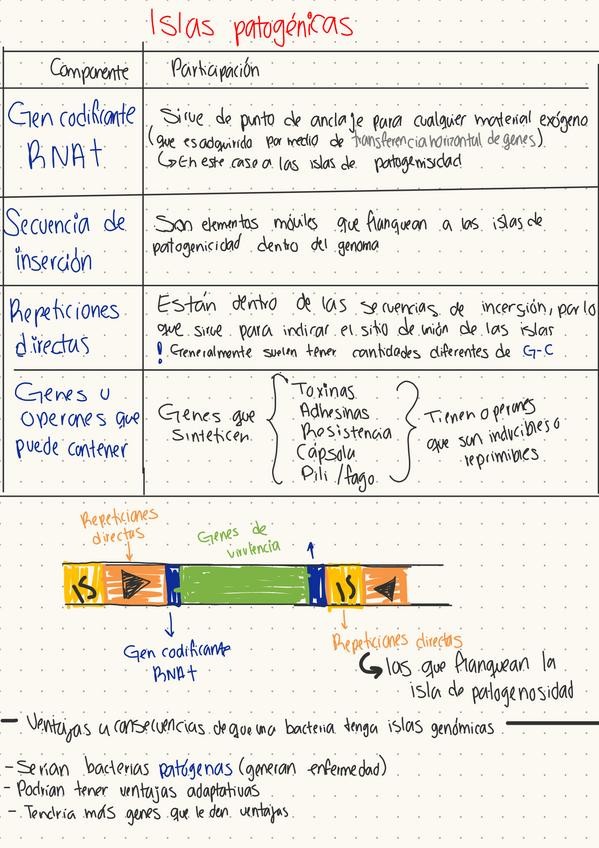 Islas patogénicas
Componente
Participación
Gen codificante
RNAt
Sirve de punto de anclaje para cualquier material exógeno
(que es adquirido por medio de transferencia horizontal de genes).
↳ En este caso a las islas de patogenisidad
Secuencia de
inserción
Son elementos móviles que flanquean a las islas de
patogenicidad dentro del genoma
Repeticiones
directas
Están dentro de las secuencias de incersión, por lo
que sirve para indicar el sitio de unión de las islas
! Generalmente suelen tener cantidades diferentes de G-C
Genes u
operones que
puede contener
Genes que
sinteticen
Toxinas
Adhesinas
Resistencia
Cápsula
Pili /fago
Tienen operones
que sun inducibles o
reprimibles
Repeticiones
directas
Genes de
virulencia
IS
IS
Gen codificante
RNAt
Repeticiones directas
↳ las que flanquean la
isla de patogenosidad
Ventajas u consecuencias de que una bacteria tenga islas genómicas
- Serían bacterias patógenas (generan enfermedad)
- Podrían tener ventajas adaptativas
- Tendría más genes que le den ventajas.